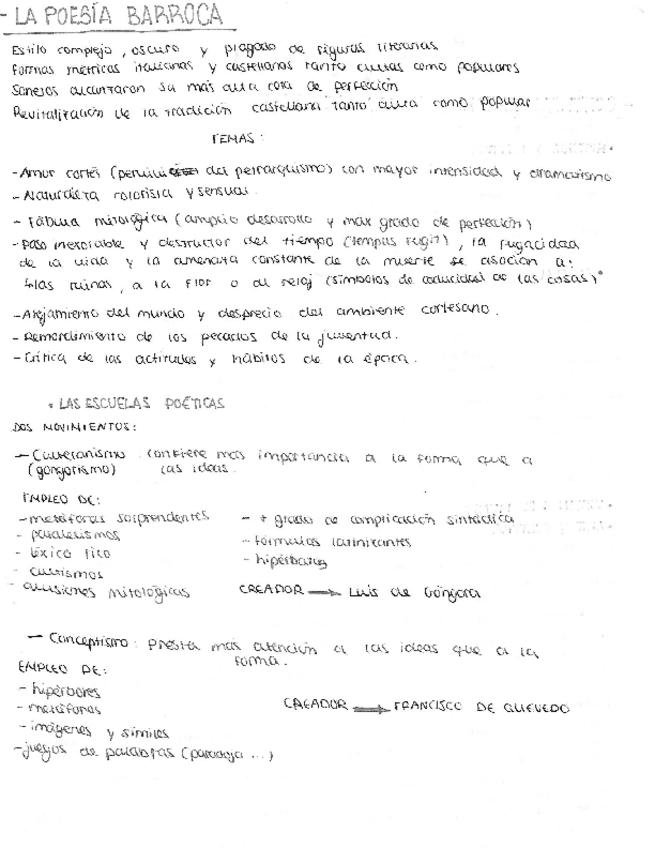 - LA POESÍA BARROCA
Estilo complejo, oscuro y plagado de figuras literarias
Formas métricas italianas y castellanas tanto cultas como populares
Sonetos alcanzaron su más alta cota de perfección
Revitalización de la tradición castellana tanto culta como popular
TEMAS:
- Amor cortés (del petrarquismo) con mayor intensidad y dramatismo
- Naturaleza colorista y sensual.
- Fábula mitológica (amplio desarrollo y max grado de perfección)
- Paso inexorable y destructor del tiempo (tempus fugit), la fugacidad
de la vida y la amenaza constante de la muerte se asocian a:
↳ las ruinas, a la flor o al reloj (símbolos de caducidad de las cosas)
- Alejamiento del mundo y desprecio del ambiente cortesano.
- Remordimiento de los pecados de la juventud.
- Crítica de las actitudes y hábitos de la época.
• LAS ESCUELAS POÉTICAS
DOS MOVIMIENTOS:
- Culteranismo confiere más importancia a la forma que a
(gongorismo) las ideas.
EMPLEO DE:
- metáforas sorprendentes - + grado de complicación sintáctica
- paralelismos - fórmulas latinizantes
- léxico rico - hipérbatos
- cultismos
- alusiones mitológicas CREADOR → Luis de Góngora
- Conceptismo: Presta más atención a las ideas que a la
forma.
EMPLEO DE:
- hipérboles
- metáforas CREADOR → FRANCISCO DE QUEVEDO
- imágenes y símiles
- juegos de palabras (paradoja ...)